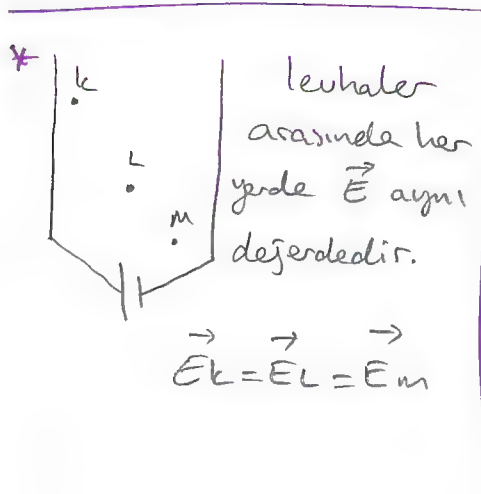 *
K
L
M
levhalar
arasında her
yerde E→ aynı
değerdedir.
E→K = E→L = E→m